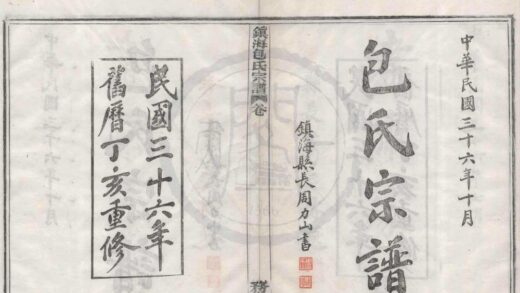 中華民國三十六年十月
包氏宗譜
鎮海縣長周力山書
鎮海包氏宗譜
卷
務
民國三十六年
舊曆丁亥重修